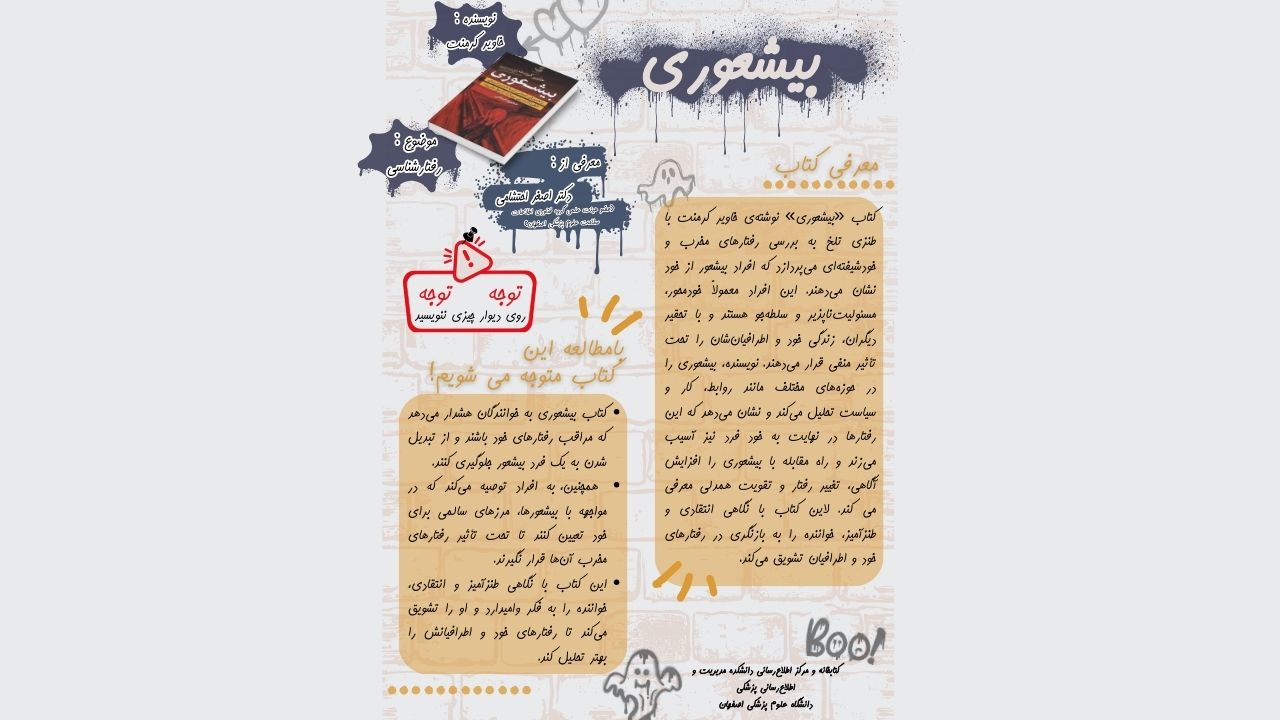 بیشعوری
نویسنده :
خاویر کرمنت
بیشعوری
موضوع :
رفتارشناسی
معرفی از :
دکتر اصغر احتشامی
(عضو هیات علمی گروه فناوری اطلاعات
سلامت علوم پزشکی اصفهان)
معرفی کتاب
کتاب «بیشعوری» نوشته‌ی خاویر کرمنت با
طنزی تلخ به بررسی رفتارهای مخرب و
خودشیفته‌ای می‌پردازد که افراد بیشعور از خود
نشان می‌دهند. این افراد معمولاً خودمحور،
مسئولیت‌ناپذیر و سلطه‌جو هستند و با تحقیر
دیگران، زندگی خود و اطرافیان‌شان را تحت
تاثیر منفی قرار می‌دهند. نویسنده، بیشعوری را
در حوزه‌های مختلف مانند روابط، کار و
سیاست تحلیل می‌کند و نشان می‌دهد که این
رفتارها در نهایت به خود فرد نیز آسیب
می‌زند و راه مقابله با بیشعوری را افزایش
آگاهی، تغییر رفتار و تقویت همدلی معرفی
می کند. این کتاب با نگاهی انتقادی و
طنزآمیز، خواننده را به بازنگری در رفتارهای
خود و اطرافیان تشویق می‌کند.
توجه توجه
روی دیوار چیزی ننویسید
بامطالعه این
کتاب متوجه می شویم!
• کتاب بیشعوری به خوانندگان هشدار می‌دهد
که مراقب رفتارهای خود باشند و از تبدیل
شدن به یک فرد بیشعور جلوگیری کنند.
• همچنین، به افراد توصیه می‌کند که در
مواجهه با بیشعورها، مرزهای سالمی برای
خود تعیین کنند تا تحت تاثیر رفتارهای
مخرب آن‌ها قرار نگیرند.
• این کتاب با نگاهی طنزآمیز و انتقادی،
خواننده را به فکر وامیدارد و او را تشویق
می‌کند تا رفتارهای خود و اطرافیانش را
بهتر تحلیل کند.
BOO!
کتابخانه و مرکز اطلاع‌رسانی دانشکده مدیریت و
اطلاع‌رسانی پزشکی
دانشگاه علوم پزشکی اصفهان